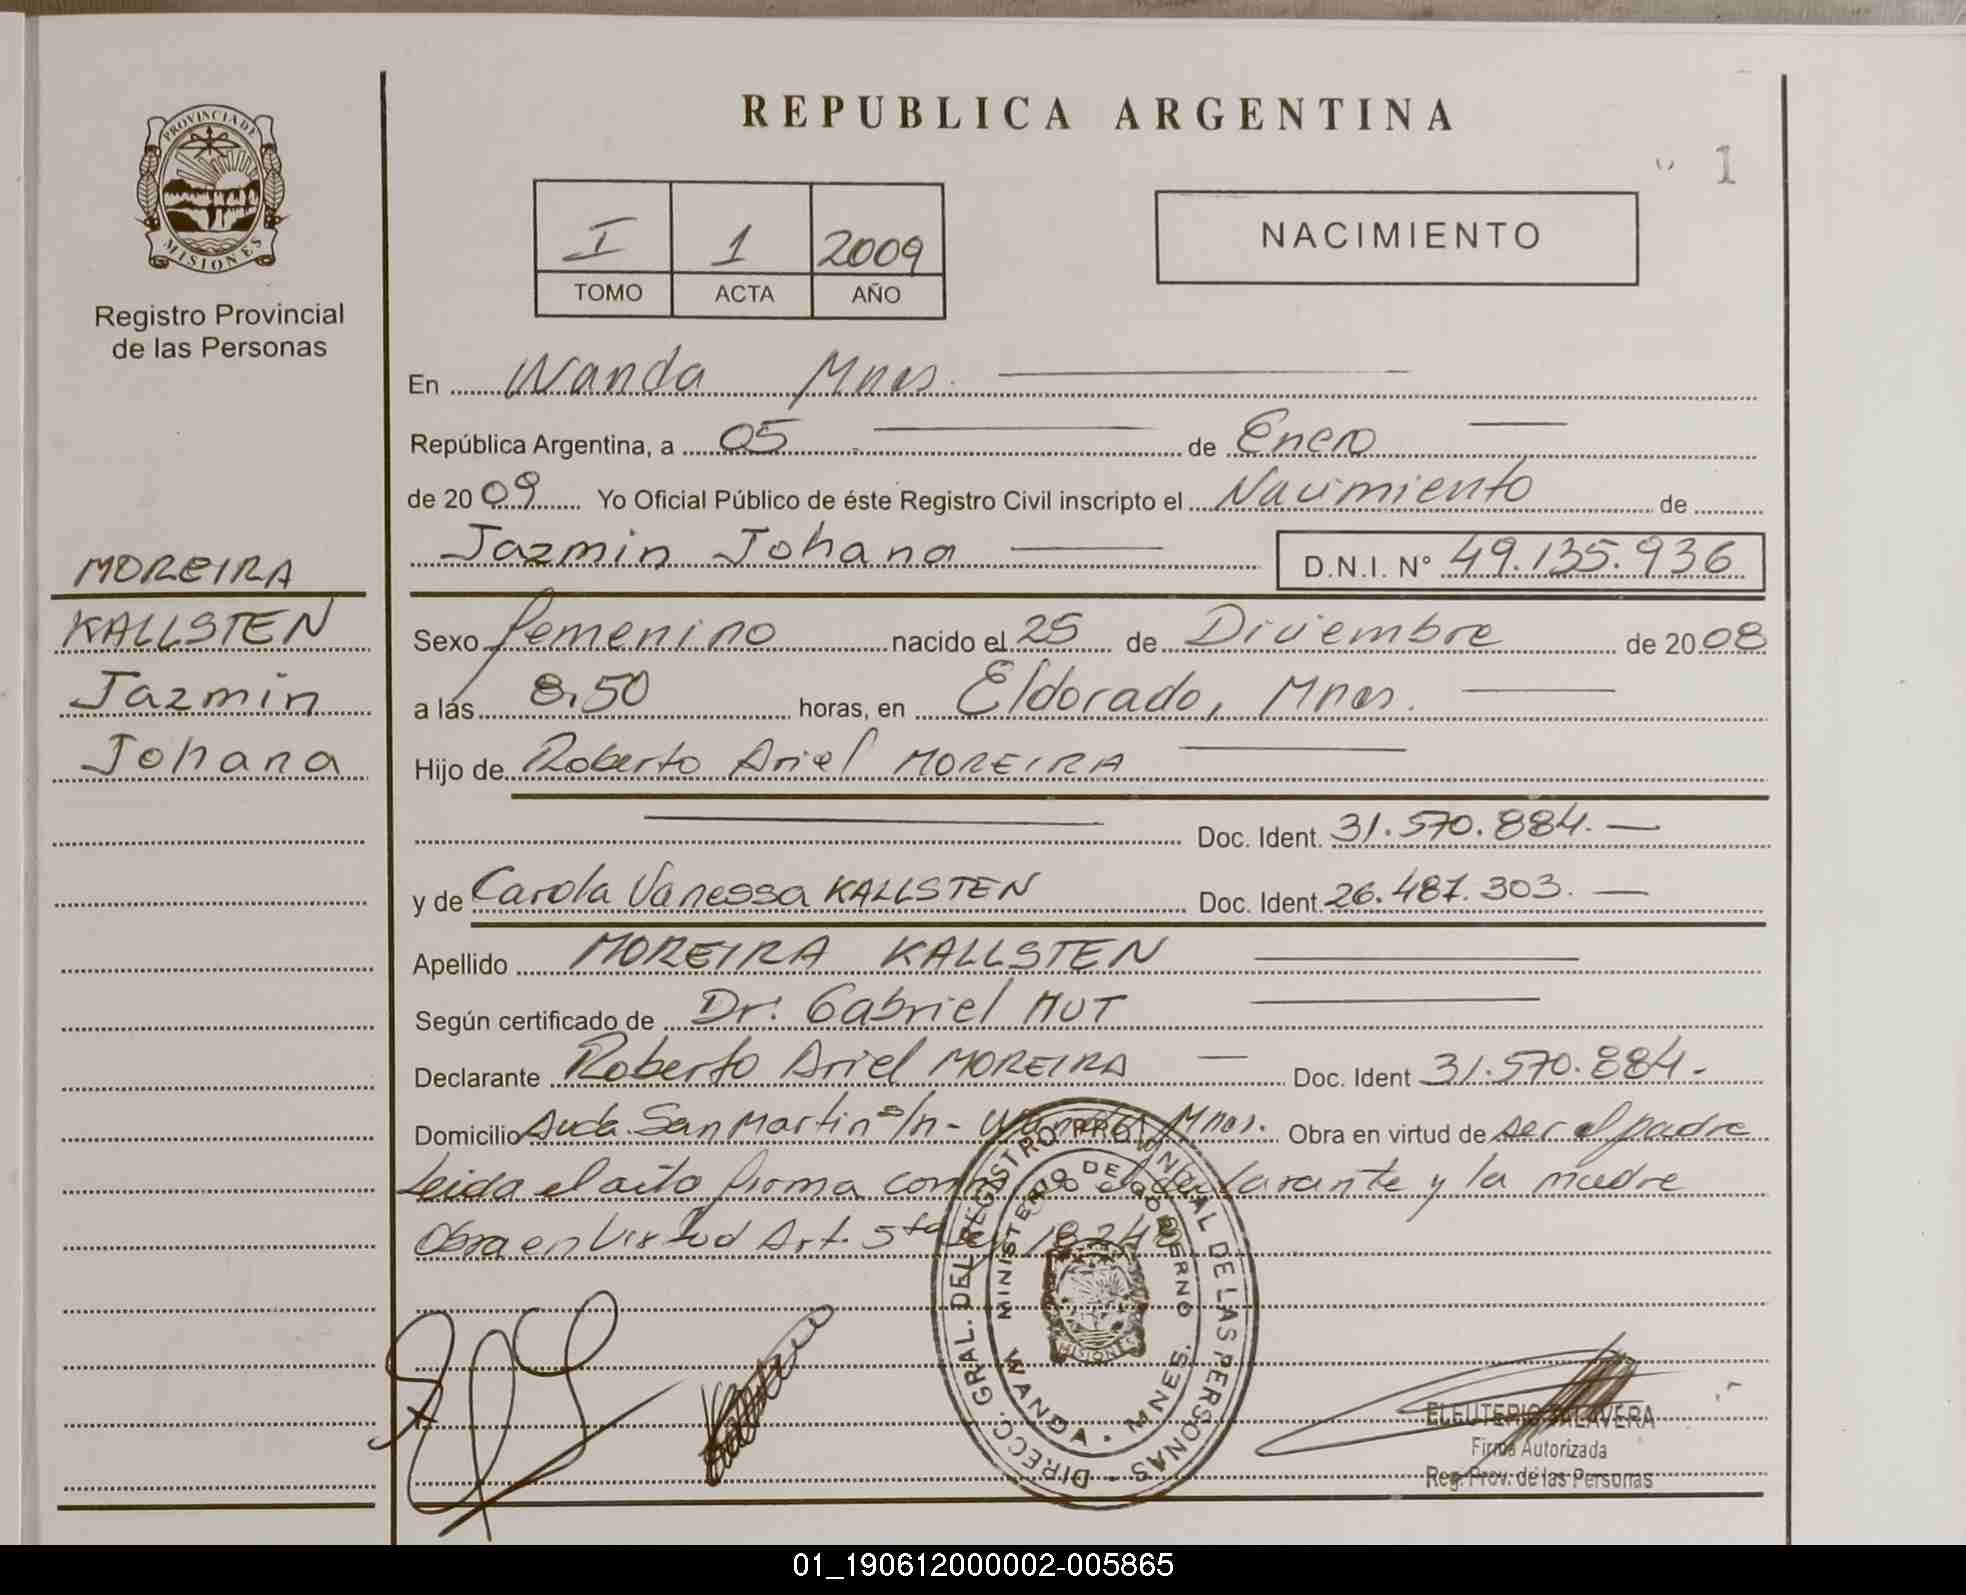 REPUBLICA ARGENTINA
1
PROVINCIA DE
MISIONES
Registro Provincial
de las Personas
I 1 2009
TOMO ACTA AÑO
NACIMIENTO
En Wanda Mnes.
República Argentina, a 05 de Enero
de 2009 Yo Oficial Público de éste Registro Civil inscripto el Nacimiento de
Jazmin Johana D.N.I. N° 49.135.936
MOREIRA
KALLSTEN
Jazmin
Johana
Sexo femenino nacido el 25 de Diciembre de 2008
a lás 8,50 horas, en Eldorado, Mnes.
Hijo de Roberto Ariel MOREIRA
Doc. Ident. 31.570.884.
y de Carola Vanessa KALLSTEN Doc. Ident. 26.487.303.
Apellido MOREIRA KALLSTEN
Según certificado de Dr. Gabriel MUT
Declarante Roberto Ariel MOREIRA Doc. Ident 31.570.884.
Domicilio Avda. San Martin s/n - Wanda, Mnes. Obra en virtud de ser el padre
Leida el acta firma conmigo el declarante y la madre
Obra en Virtud Art. 5to 18.248
DIRECC. GRAL. DEL REGISTRO PROVINCIAL DE LAS PERSONAS
MINISTERIO DE GOBIERNO
WANDA - MNES.
MISIONES
ELEUTERIO TALAVERA
Firma Autorizada
Reg. Prov. de las Personas
01_190612000002-005865